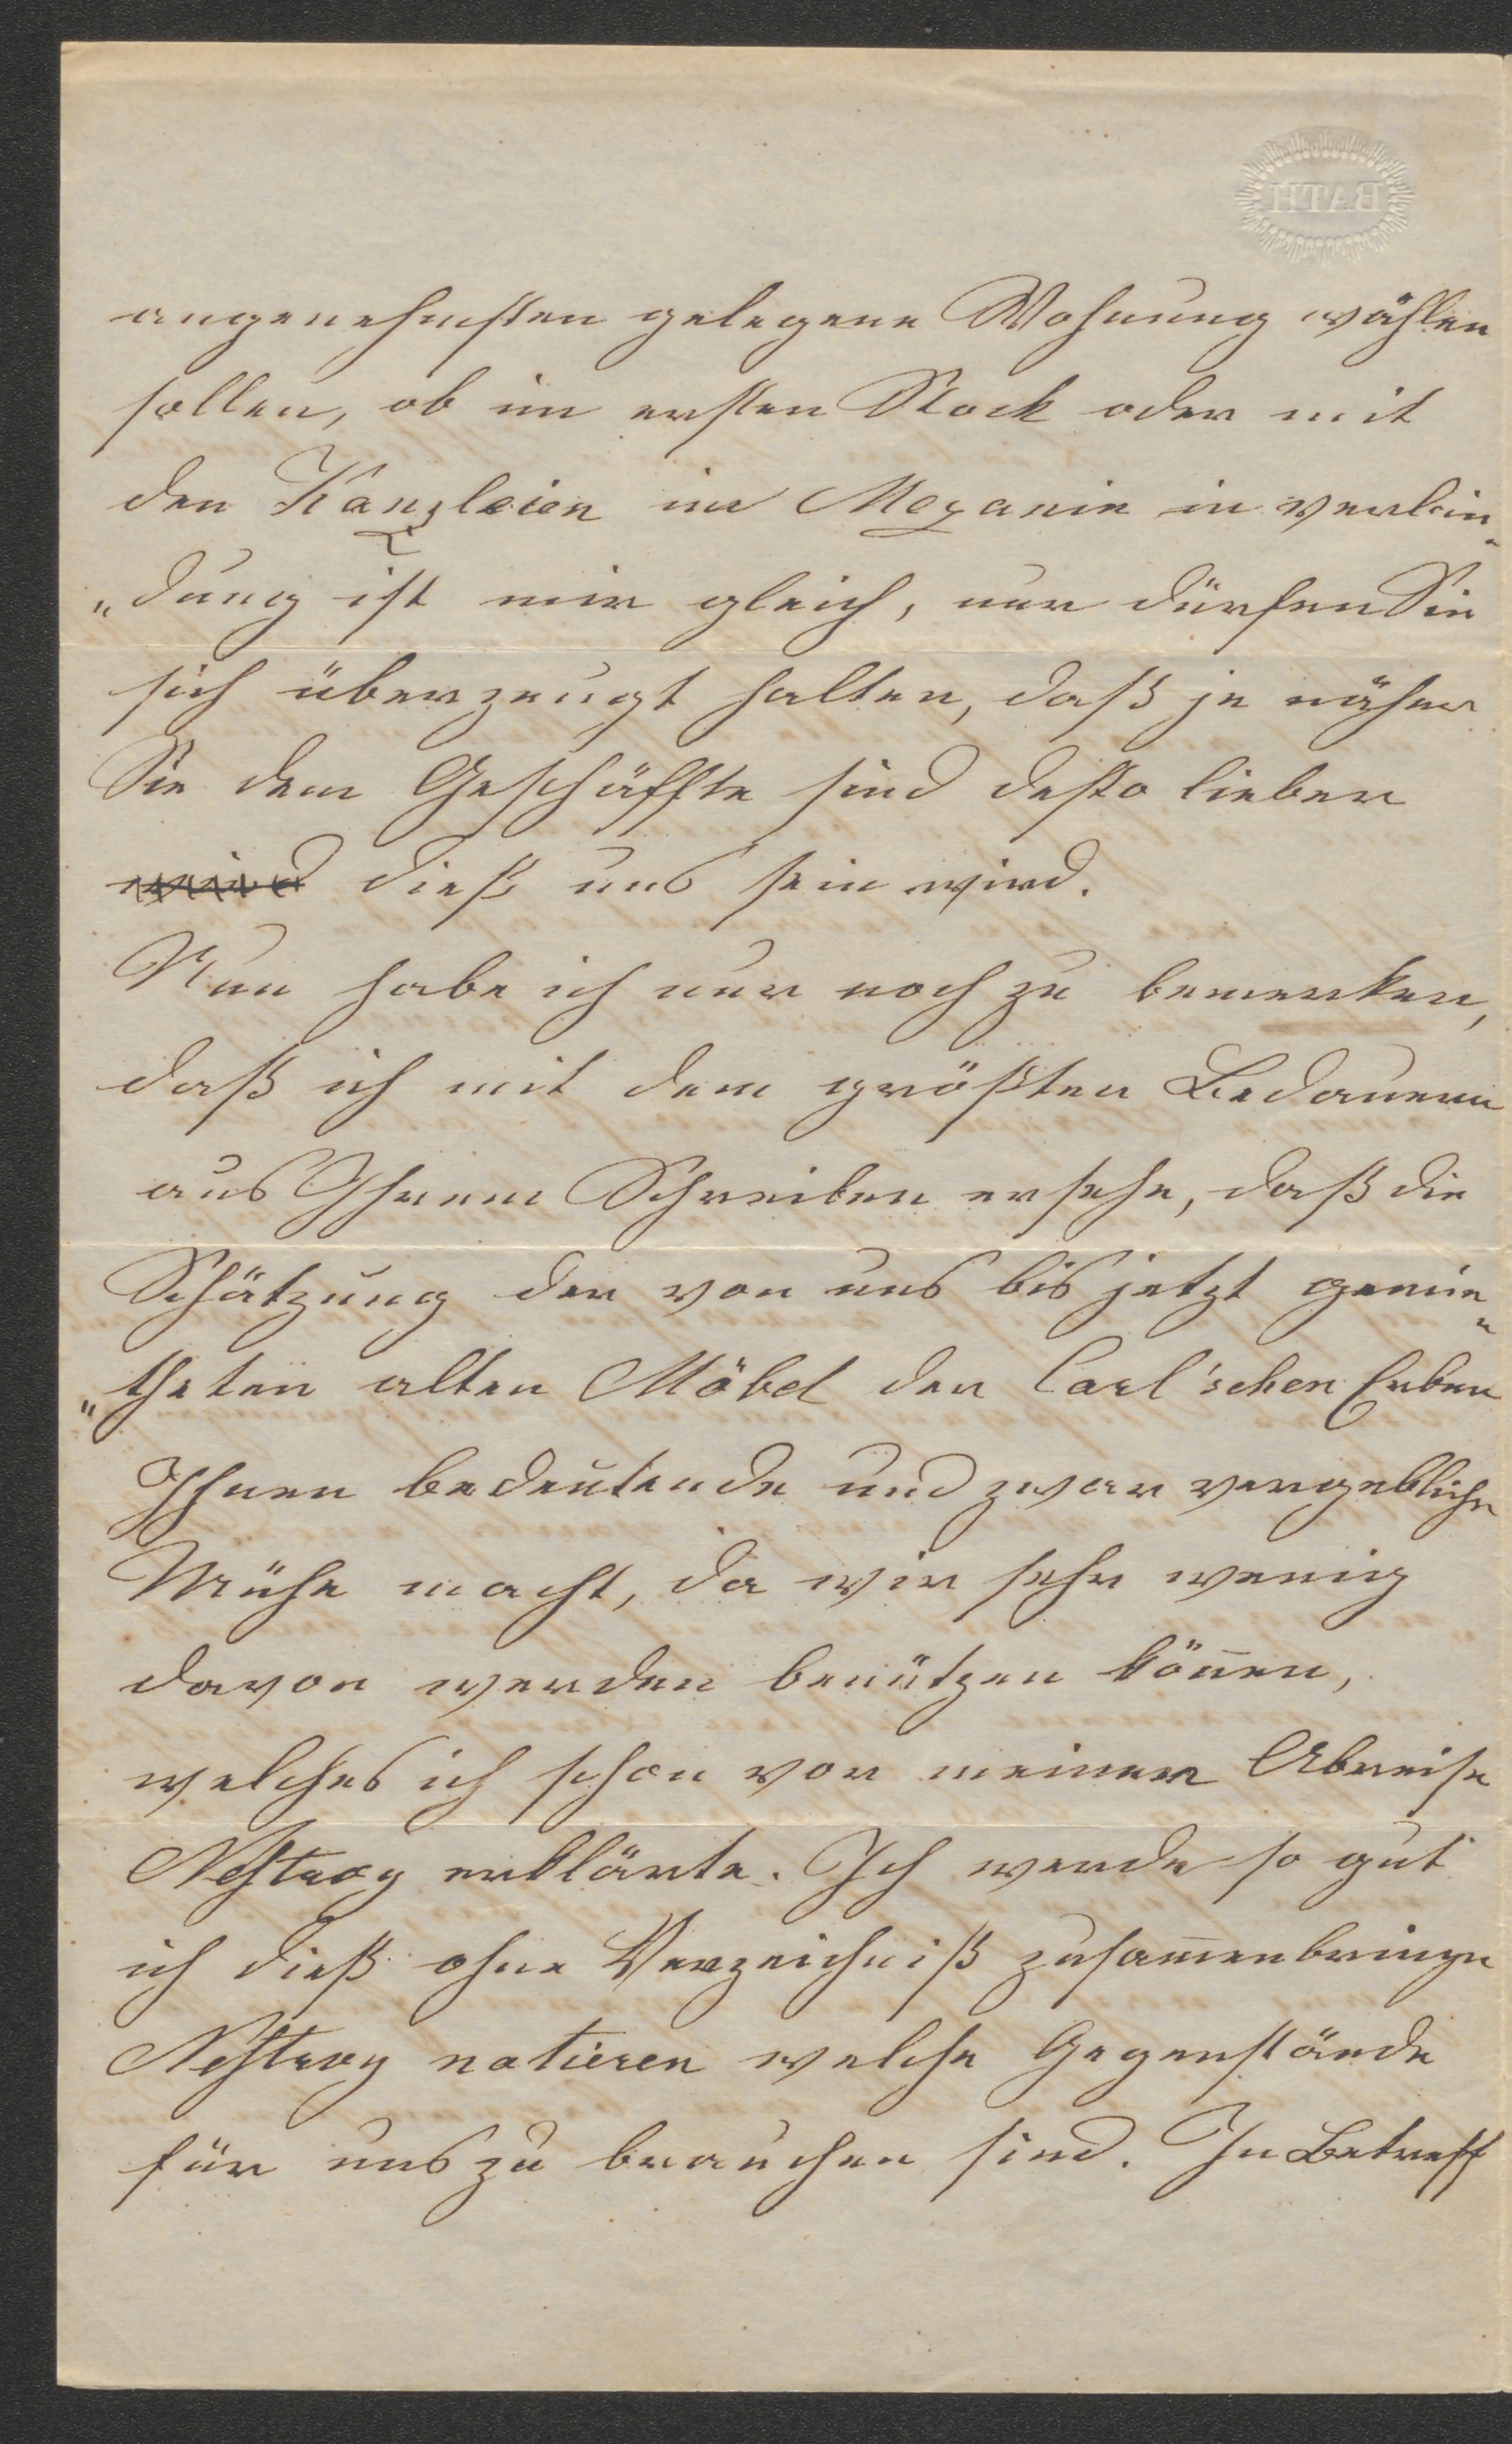 BATH
angenehmsten gelegene Wohnung wählen
sollen, ob im ersten Stock oder mit
den Kanzleien im Mezanin in verbin„
„dung ist mir gleich, nur dürfen Sie
sich überzeugt halten, daß je näher
Sie dem Geschäffte sind desto lieber
wird dieß uns sein wird.
Nun habe ich nur noch zu bemerken,
daß ich mit dem größten Bedauern
aus Ihrem Schreiben ersehe, daß die
Schätzung der von uns bis jetzt gemie„
„theten alten Möbel der Carl'schen Erben
Ihnen bedeutende und zwar vergebliche
Mühe macht, da wir sehr wenig
davon werden benützen können,
welches ich schon vor meiner Abreise
Nestroy erklärte. Ich werde so gut
ich dieß ohne Verzeichniß zusam̄enbringe
Nestroy notieren welche Gegenstände
für uns zu brauchen sind. In Betreff